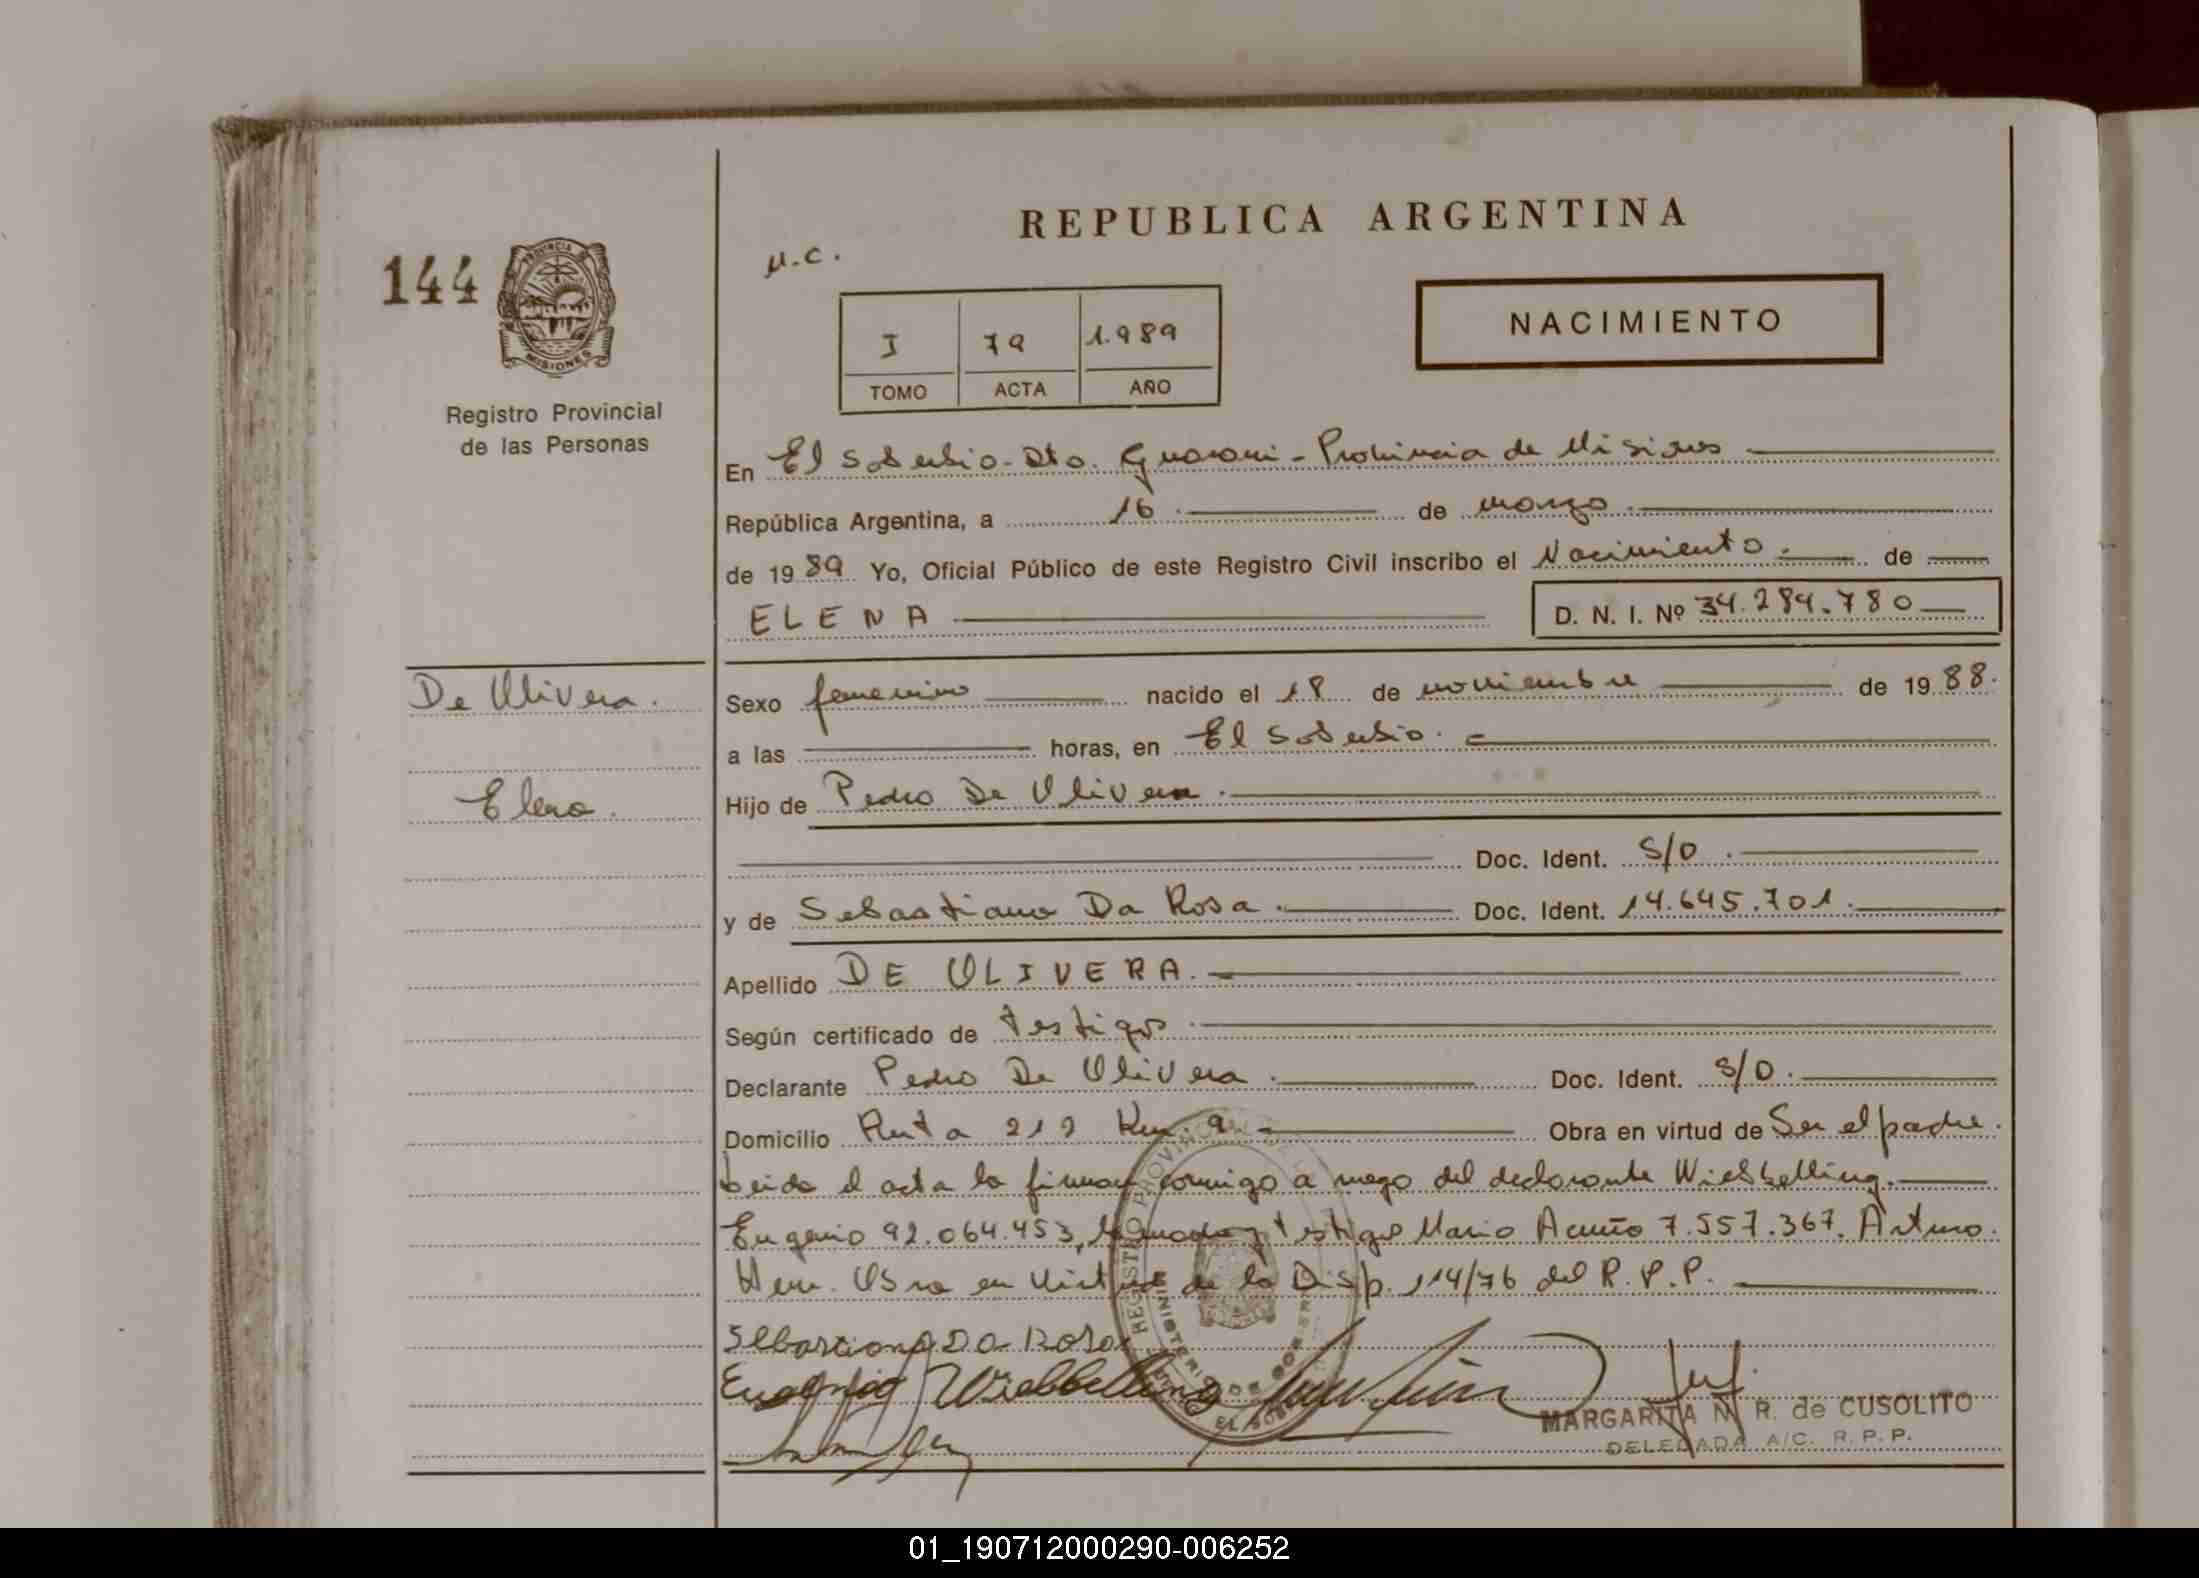 REPUBLICA ARGENTINA
µ.c.
144
PROVINCIA
MISIONES
Registro Provincial
de las Personas
I 79 1.989
TOMO ACTA AÑO
NACIMIENTO
En El Soberbio - Dto. Guarani - Provincia de Misiones
República Argentina, a 16 de marzo
de 1989 Yo, Oficial Público de este Registro Civil inscribo el Nacimiento. de
ELENA D. N. I. Nº 34.284.780
De Olivera.
Elena.
Sexo femenino nacido el 18 de noviembre de 1988.
a las horas, en El Soberbio.
Hijo de Pedro De Olivera.
Doc. Ident. S/D.
y de Sebastiana Da Rosa. Doc. Ident. 14.645.701.
Apellido DE OLIVERA.
Según certificado de testigos.
Declarante Pedro De Olivera. Doc. Ident. S/D.
Domicilio Ruta 212 Km. 9 Obra en virtud de Ser el padre.
Leida el acta la firman conmigo a ruego del declarante Wiebbelling.
Eugenio 92.064.453, la madre y testigos Mario Acuña 7.557.367. Arturo.
Obra en virtud de la Disp. 114/76 del R.P.P.
Sebastiana Da Rosa
Eugenio Wiebbelling
REGISTRO PROVINCIAL
MINISTERIO DE GOBIERNO
EL SOBERBIO
MARGARITA N. R. de CUSOLITO
DELEGADA A/C. R. P. P.
01_190712000290-006252